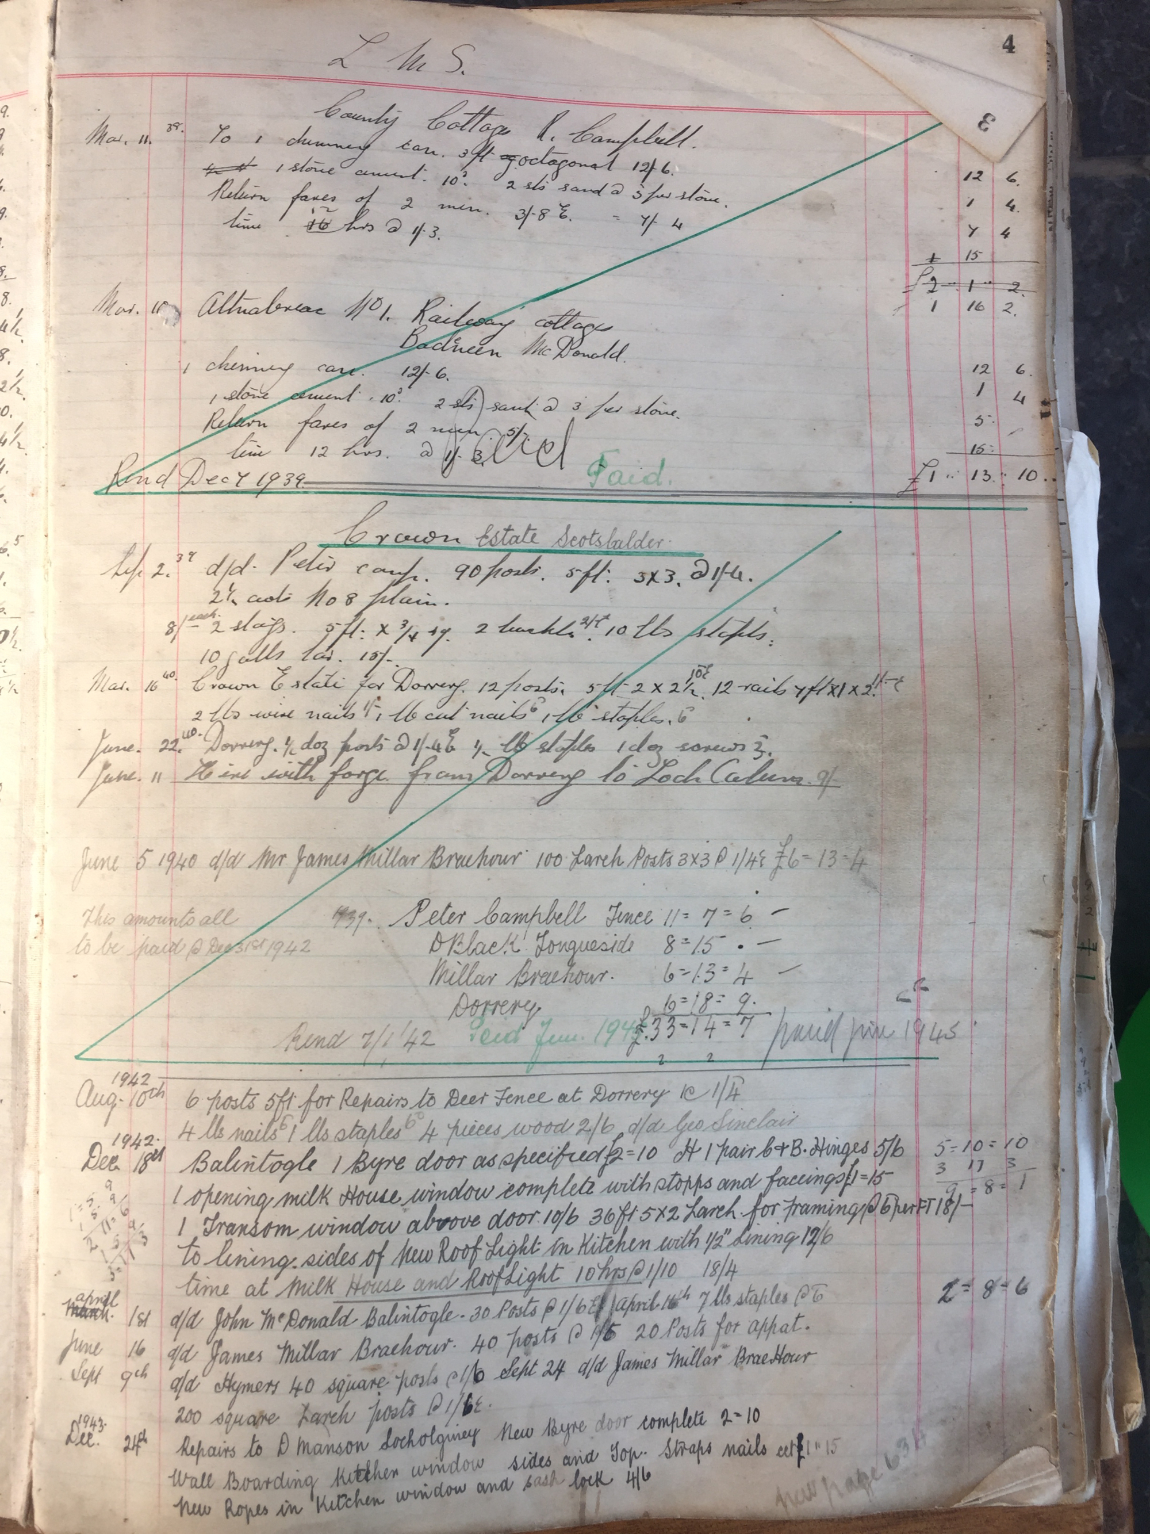 4
3
L M S.
County Cottage R. Campbell.
Mar. 11. 39. To 1 chimney can. 3ft octagonal 12/6. 12 6.
1 stone cement. 10? 2 sts sand @ 3 per stone. 1 4.
Return fares of 2 men. 3/-8 E. = 7/- 4 7 4
time 12 hrs @ 1/3. 1 15
£2 1 2.
1 16 2.
Mar. 11 Altnabreac No 1. Railway cottages
McDonald.
1 chimney can. 12/-6. 12 6.
1 stone cement. 10? 2 sts sand @ 3 per stone. 1 4
Return fares of 2 men. 5/- 5
time 12 hrs. @ 1/-3. Paid 15
Rend Dec 7 1939 Paid. £1 .. 13 .. 10 ..
Crown Estate Scotscalder.
Sep. 2. 39 d/d. Peter camp. 90 posts. 5ft. 3x3. @ 1/4.
2 1/4 No 8 plain.
8/- each 2 stays. 5ft. x 3/4 sq. 2 10 lbs staples.
10 galls tar. 15/-.
Mar. 16 40. Crown Estate for Dorrery. 12 posts. 5ft 2 x 2 1/2. 12 rails 7ft x 1 x 2.
2 lbs wire nails 1 lb cut nails 6 1 lb staples. 6
June. 22. 40. Dorrery. 1/2 doz posts @ 1/-4 E 1/2 lb staples 1 doz screws 3.
June. 11 Hire with forge from Dorrery to Loch Calum. 9/-
June 5 1940 d/d Mr James Millar Braehour 100 Larch Posts 3x3 @ 1/4 E £6=13=4
This amounts all 1939. Peter Campbell Fence 11=7=6 –
to be paid @ Dec 31st 1942 D Black Tongueside 8=15 . –
Millar Braehour. 6=13=4 –
Dorrery 6=18=9.
Rend 7/1/42 Paid Jun. 1943 £33=14=7 paid 1943
1942
Aug. 10th 6 posts 5ft for Repairs to Deer Fence at Dorrery @ 1/4
4 lbs nails 6 1 lbs staples 6 4 pieces wood 2/6 d/d Geo Sinclair
1942.
Dec 18th Balintogle 1 Byre door as specified £2=10 H 1 pair C+B. Hinges 5/6 5=10=10
1 opening milk House window complete with stopps and faceings £1=15 3 17 3
1 Transom window above door 10/6 36ft 5x2 Larch for framing @ 6 per FT 18/- 9=8=1
to lining sides of New Roof Light in Kitchen with 1/2" Lining 12/6
time at Milk House and Roof Light 10 hrs @ 1/10 18/4
April 1st d/d John McDonald Balintogle. 30 Posts @ 1/6 E April 16th 7 lbs staples @ 6 2=8=6
June 16 d/d James Millar Braehour. 40 posts @ 1/6 20 Posts for appat.
Sept 9th d/d Hymers 40 square posts @ 1/6 Sept 24 d/d James Millar BraeHour
200 square Larch posts @ 1/6 E.
1943
Dec. 24th Repairs to D Manson Locholginey New Byre door complete 2=10
Wall Boarding Kitchen window sides and Top. Straps nails ect £1=15
New Ropes in Kitchen window and sash lock 4/6
new page 63